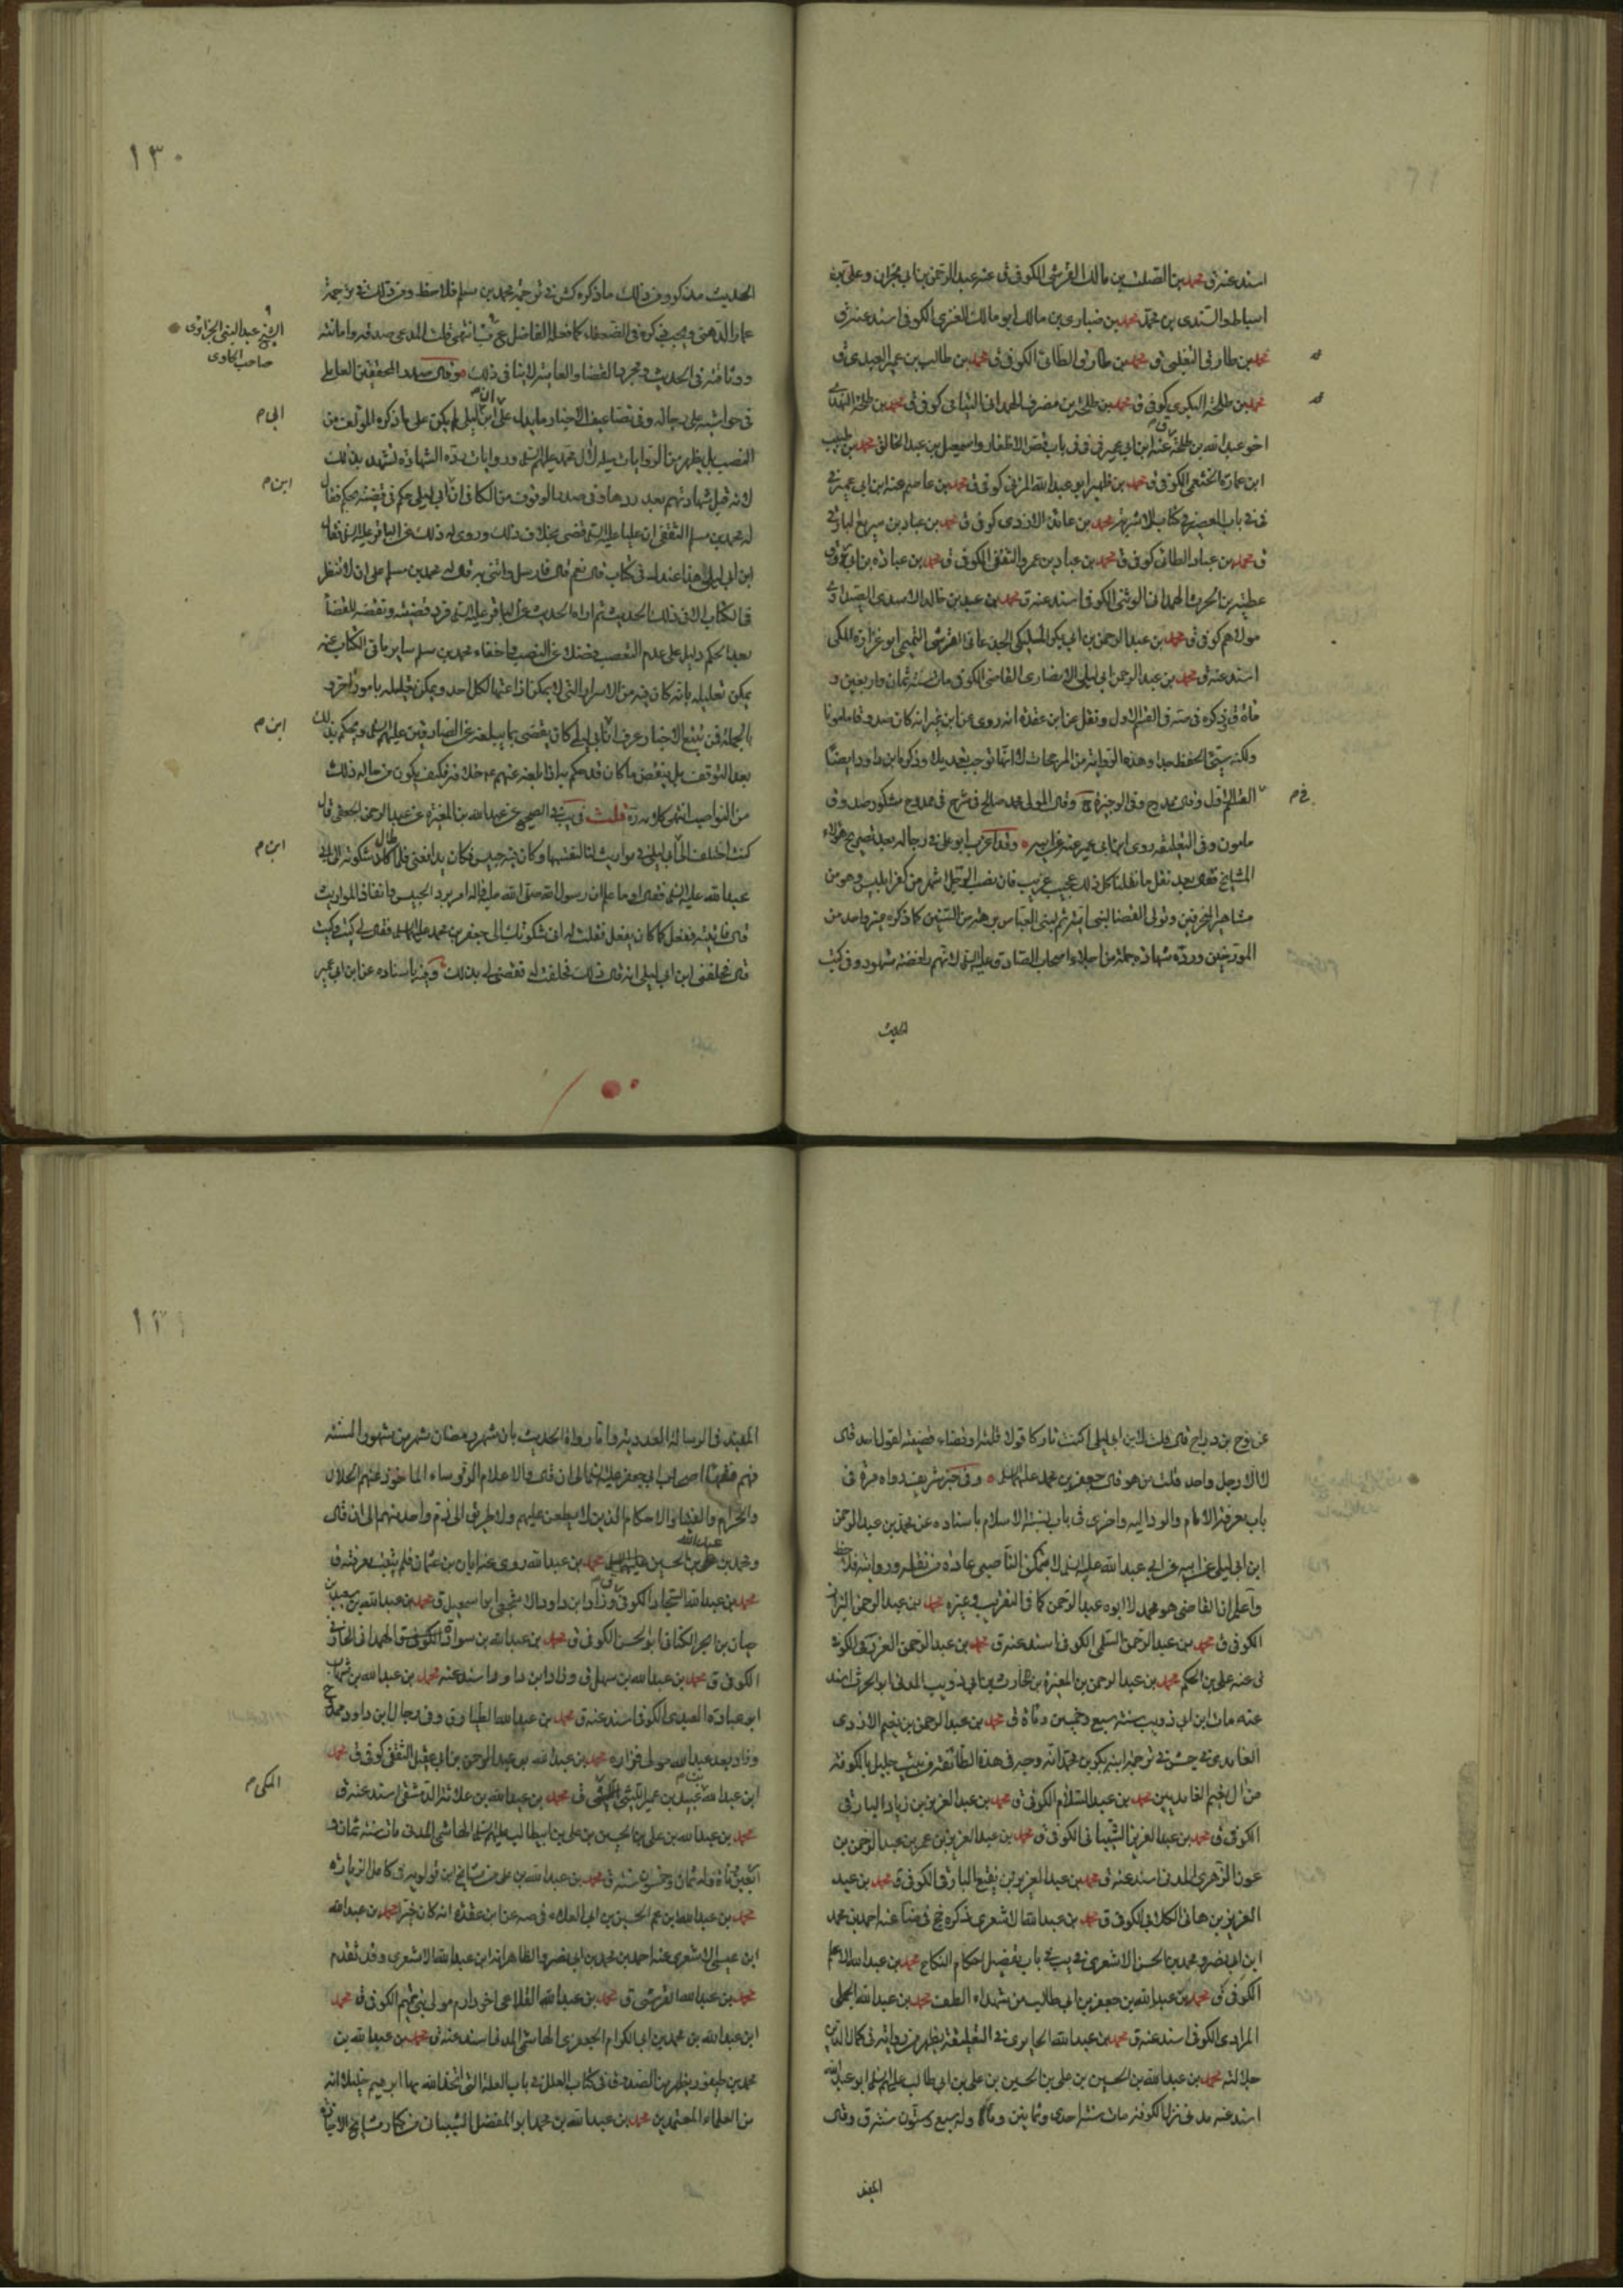 اسند عنه ق محمد بن الصلت بن مالك القرشي الكوفي ق عنه عبد الرحمن بن ابي نجران وعلي بن
اسباط والسندي بن محمد محمد بن ضباري بن مالك ابو مالك العنزي الكوفي اسند عنه ق
محمد بن طارق التغلبي ق محمد بن طارق الطائي الكوفي ق محمد بن طالب بن عمير العبدي ق
محمد بن طلحة البكري كوفي ق محمد بن طلحة بن مصرف الهمداني اليامي كوفي ق محمد بن طلحة النهدي
اخو عبد الله بن طلحة عنه ابن ابي عمير في في باب قص الاظفار واسمعيل بن عبد الخالق محمد بن
ابن عمارة الخثعمي الكوفي ق محمد بن ظهير ابو عبد الله المزني كوفي ق محمد بن عاصم عنه ابن ابي عمير في
في باب العصير في كتاب الاشربة محمد بن عائذ الازدي كوفي ق محمد بن عباد بن سريع البارقي
ق محمد بن عباد الطائي كوفي ق محمد بن عباد بن عمرو الثقفي الكوفي ق محمد بن عبادة بن ابي روق
عطية بن الحرث الهمداني الوثني الكوفي اسند عنه ق محمد بن عبد بن خالد الاسدي الصيداوي
مولاهم كوفي ق محمد بن عبد الرحمن بن ابي بكر المليكي الجدعاني القرشي التيمي ابو غرازة المكي
اسند عنه ق محمد بن عبد الرحمن ابي ليلى الانصاري القاضي الكوفي مات سنة ثمان واربعين و
مأة ق ذكره في صه في القسم الاول ونقل عن ابن عقدة انه روى عن ابن نمير انه كان صدوقا مامونا
ولكنه سيئ الحفظ جدا وهذه الرواية من المرجحات لا انها توجب تعديلا وذكره ابن داود ايضا
القسم الاول وقال ممدوح وفي الوجيزة ح وقال المولى محمد صالح في شرح في ممدوح مشكور صدوق
مامون وفي التعليقة روى ابن ابي عمير عنه عن ابيه وقد اعرب ابو علي في رجاله بعد تصريح هؤلاء
المشايخ فقال بعد نقل ما نقلنا كل ذلك عجيب غريب فان نصب الرجل اشهر من كفر ابليس وهو من
مشاهير المنحرفين وتولى القضا لبني امية ثم لبني العباس برهة من السنين كما ذكره غير واحد من
المورخين ورده شهادة جملة من اجلاء اصحاب الصادق عليه السلام لانهم رافضة مشهود وفي كتب
الحديث
في م
١٣٠
الحديث مذكور ومن ذلك ما ذكره كش في ترجمة محمد بن مسلم فلاحظ ومر ذلك في ترجمة
عمار الدهني ويجب ذكره في الضعفاء كما فعله الفاضل عبد النبي انتهى قلت المدعى صدقه وامانته
ووثاقته في الحديث ومجرد القضا والعامية لا ينافي ذلك وقال سيد المحققين العاملي
في حواشيه على رجاله وفي تضاعيف الاخبار ما يدل على ان ابن ابي ليلى لم يكن على ما ذكره المؤلف من
النصب بل يظهر من الروايات ميله لال محمد عليهم السلام وروايات رده الشهادة تشهد بذلك
لانه قبل شهادتهم بعد ردها وفي صدر الوقوف من الكافي ان ابي ليلى حكم في قضية بحكم فقال
له محمد بن مسلم الثقفي ان عليا عليه السلام قضى بخلاف ذلك وروى له ذلك عن الباقر عليه السلام فقال
ابن ابي ليلى هذا عندك في كتاب قال نعم قال فارسل وائتني به قال له محمد بن مسلم على ان لا تنظر
في الكتاب الا في ذلك الحديث ثم اراه الحديث عن الباقر عليه السلام فرد قضيته ونقضه للقضاء
بعد الحكم دليل على عدم التعصب فضلا عن النصب واخفاء محمد بن مسلم ساير باقي الكتاب عنه
يمكن تعليله بانه كان فيه من الاسرار التي لا يمكن اذاعتها لكل احد ويمكن تعليله بامور اخر و
بالجملة فمن تتبع الاخبار عرف ان ابي ليلى كان يقضي بما يبلغه عن الصادقين عليهم السلام ويحكم بذلك
بعد التوقف بل ينقض ما كان قد حكم به اذا بلغه عنهم ع خلافه فكيف يكون من حاله ذلك
من النواصب انتهى كلامه ره قلت في يب في الصحيح عن عبد الله بن المغيرة عن عبد الرحمن الجعفي قال
كنت اختلف الى ابي ليلى في مواريث لنا لنقسمها وكان فيه حبيس فكان يدافعني فلما طال شكوته الى ابي
عبد الله عليه السلام فقال او ما علم ان رسول الله صلى الله عليه واله امر برد الحبيس وانفاذ المواريث
قال فاتيته ففعل كما كان يفعل فقلت له اني شكوتك الى جعفر بن محمد عليهما السلام فقال لي كيت وكيت
قال فحلفني ابن ابي ليلى انه قال ذلك فحلفت له فقضى لي بذلك وفيه باسناده عن ابن ابي عمير
الشيخ عبد النبي الجزائري
صاحب الحاوي
ابي م
ابن م
ابن م
ابن م
عن نوح بن دراج قال قلت لابن ابي ليلى اكنت تاركا قولا قلته او قضاء قضيته لقول احد قال
لا الا رجل واحد قلت من هو قال جعفر بن محمد عليهما السلام وفي خبر شريف رواه مرة في
باب معرفة الامام والرد اليه واخرى في باب نسبة الاسلام باسناده عن محمد بن عبد الرحمن
ابن ابي ليلى عن ابيه عن ابي عبد الله عليه السلام لا يتمكن الناصبي عادة من نقله وروايته فلاحظ
واعلم ان القاضي هو محمد لا ابوه عبد الرحمن كما في التقريب وغيره محمد بن عبد الرحمن
الكوفي ق محمد بن عبد الرحمن السلمي الكوفي اسند عنه ق محمد بن عبد الرحمن العرزمي الكوفي
في عنه علي بن الحكم محمد بن عبد الرحمن بن المغيرة بن الحارث بن ابي ذويب المدني ابو الحرث اسند
عنه مات ابن ابي ذويب سنة سبع وخمسين ومأة ق محمد بن عبد الرحمن بن نعيم الازدي
الغامدي في جش في ترجمة ابنه بكر بن محمد انه وجه في هذه الطائفة من بيت جليل بالكوفة
من ال نعيم الغامديين محمد بن عبد السلام الكوفي ق محمد بن عبد العزيز بن زياد البارقي
الكوفي ق محمد بن عبد العزيز الشيباني الكوفي ق محمد بن عبد العزيز بن عمر بن عبد الرحمن بن
عوف الزهري المدني اسند عنه ق محمد بن عبد العزيز بن نفيع البارقي الكوفي ق محمد بن عبد
العزيز بن هاني الكلابي الكوفي ق محمد بن عبد الله الاشعري ذكره جخ في ضا عنه احمد بن محمد
ابن ابي نصر ومحمد بن الحسن الاشعري في يب في باب تفصيل احكام النكاح محمد بن عبد الله الاعلم
الكوفي ق محمد بن عبد الله بن جعفر بن ابي طالب من شهداء الطف محمد بن عبد الله البجلي
المرادي الكوفي اسند عنه ق محمد بن عبد الله الحايري في التعليقة يظهر من روايته في كمال الدين
جلالته محمد بن عبد الله بن الحسين بن علي بن الحسين بن علي بن ابي طالب عليهم السلام ابو عبد الله
اسند عنه مدني نزل الكوفة مات سنة احدى وثمانين ومأة وله سبع وستون سنة ق وقال
المفيد
المفيد في الرسالة العددية واما رواة الحديث بان شهر رمضان شهر من شهور السنة
فهم فقهاء اصحاب ابي جعفر عليه السلام الى ان قال والاعلام الرؤساء الماخوذ عنهم الحلال
والحرام والفتيا والاحكام الذين لا يطعن عليهم ولا طريق الى ذم واحد منهم الى ان قال
ومحمد بن عبد الله بن الحسين عليهما السلام محمد بن عبد الله روى عنه ابان بن عثمان فلم يثبت معرفته ق
محمد بن عبد الله السجاد الكوفي ق وزاد ابن داود ال شجوي ابو اسمعيل ق محمد بن عبد الله بن سعيد بن
حيان بن ابجر الكناني ابو الحسن الكوفي ق محمد بن عبد الله بن سواق الكوفي ق الهمداني الحارفي
الكوفي ق محمد بن عبد الله بن سهل ق وزاد ابن داود اسند عنه محمد بن عبد الله بن شهاب
ابو عبادة العبدي الكوفي اسند عنه ق محمد بن عبد الله الطيار ق وفي رجال ابن داود محمد
وزاد بعد عبد الله مولى فزارة محمد بن عبد الله بن عبد الرحمن بن ابي عقيل الثقفي كوفي ق محمد
ابن عبد الله بن عبيد بن عمير الليثي المكي ق محمد بن عبد الله بن علاثة الدمشقي اسند عنه ق
محمد بن عبد الله بن علي بن الحسين بن علي بن ابيطالب عليهم السلام الهاشمي المدني مات سنة ثمان و
اربعين ومأة وله ثمان وخمسون سنة ق محمد بن عبد الله بن علي من مشايخ ابن قولويه في كامل الزيارة
محمد بن عبد الله بن عم الحسين بن ابي العلاء في صه عن ابن عقدة انه كان خيرا محمد بن عبد الله
ابن عيسى الاشعري عنه احمد بن محمد بن ابي نصر والظاهر انه ابن عبد الله الاشعري وقد تقدم
محمد بن عبد الله القرشي ق محمد بن عبد الله القلاعي اخو دارم مولى بني تميم الكوفي ق محمد
ابن عبد الله بن محمد بن ابي الكرام الجعفري الهاشمي المدني اسند عنه ق محمد بن عبد الله بن
محمد بن طيفور يظهر من الصدوق في كتاب العلل في باب العلة التي اتخذ الله بها ابرهيم خليلا انه
من العلماء المعتمدين محمد بن عبد الله بن محمد ابو المفضل الشيباني من كبار مشايخ الاجازة
المكي م